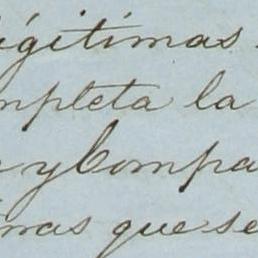 légitimas
mpleta la
y Compa
mas que se